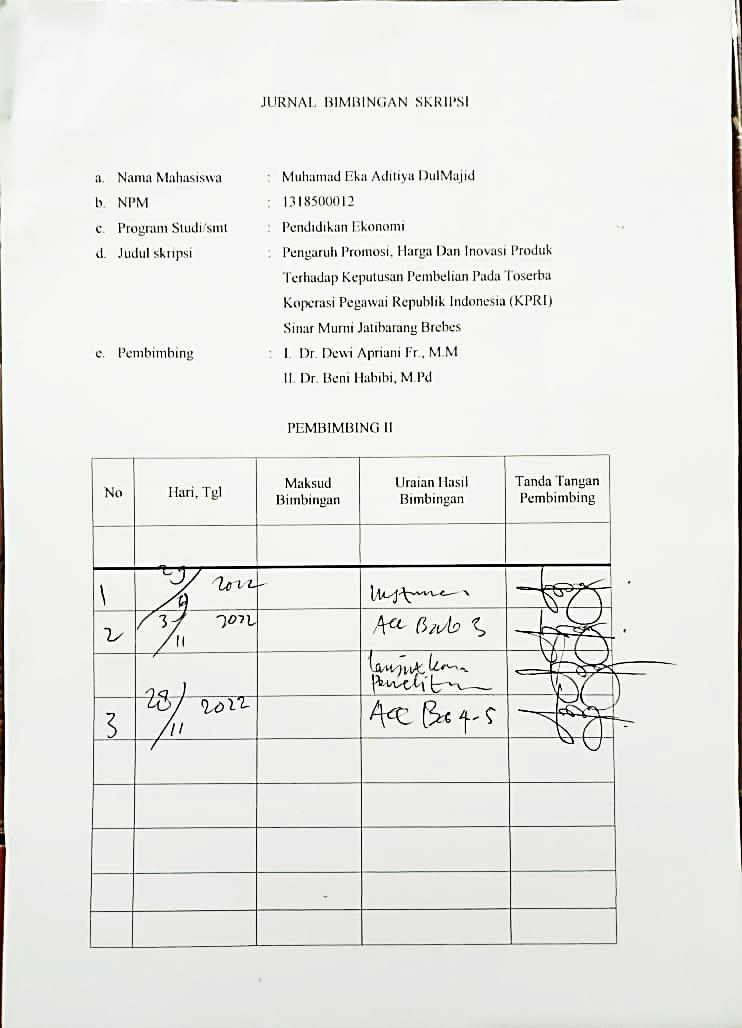 JURNAL BIMBINGAN SKRIPSI
a. Nama Mahasiswa : Muhamad Eka Aditiya DulMajid
b. NPM : 1318500012
c. Program Studi/smt : Pendidikan Ekonomi
d. Judul skripsi : Pengaruh Promosi, Harga Dan Inovasi Produk
Terhadap Keputusan Pembelian Pada Toserba
Koperasi Pegawai Republik Indonesia (KPRI)
Sinar Murni Jatibarang Brebes
e. Pembimbing : I. Dr. Dewi Apriani Fr., M.M
II. Dr. Beni Habibi, M.Pd
PEMBIMBING II
No Hari, Tgl Maksud Bimbingan Uraian Hasil Bimbingan Tanda Tangan Pembimbing
1 2022
2 3/11 2022 Acc Bab 3
lanjutkan
penelitian
3 28/11 2022 Acc Bab 4-5